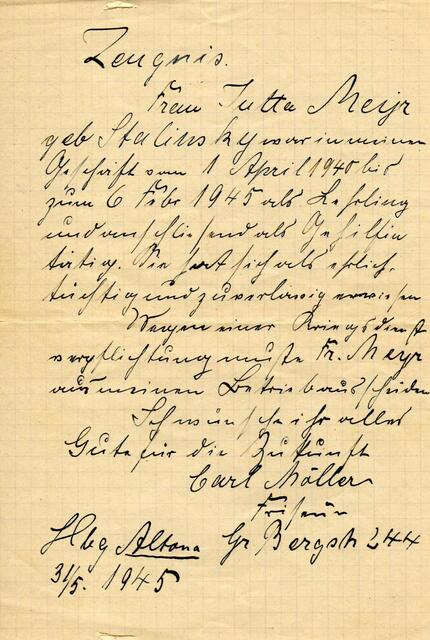 Zeugnis.
Frau Jutta Meyr
geb Stalinsky war in meinen
Geschäft vom 1 April 1940 bis
zum 6 Febr 1945 als Lehrling
und anschliesend als Gehilfin
tätig. Sie hat sich als ehrlich,
tüchtig und zuverlässig erwiesen
Wegen einer Kriegsdienst
verpflichtung muste Fr. Meyr
aus meinen Betrieb ausscheiden
Ich wünsche ihr alles
Gute für die Zukunft
Carl Möller
Friseur
Hbg Altona Gr Bergstr 244
31/5. 1945